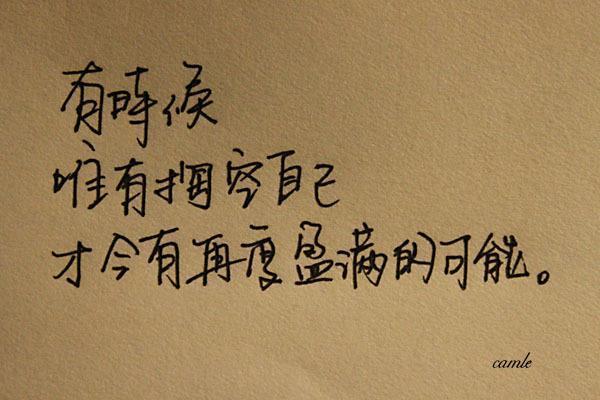 有时候
唯有掏空自己
才会有再度盈满的可能。
camle